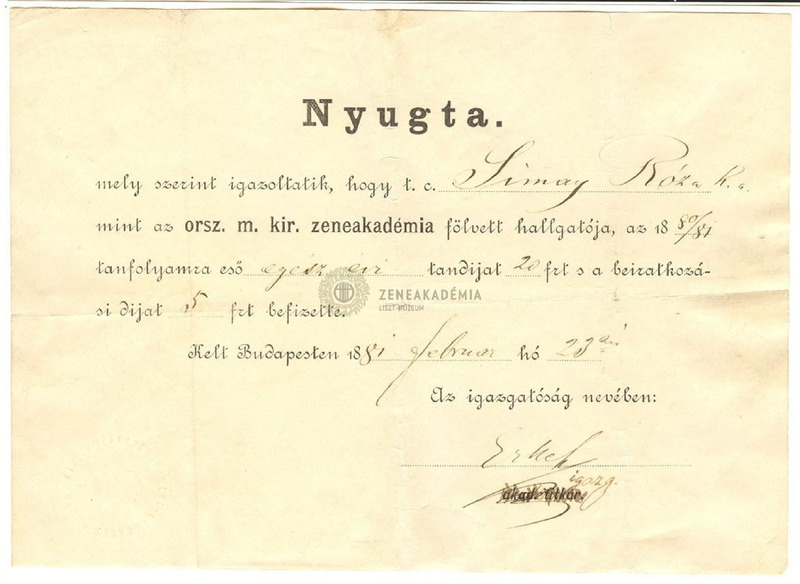 Nyugta.
mely szerint igazoltatik, hogy t. c. Simay Róza k. a.
mint az orsz. m. kir. zeneakadémia fölvett hallgatója, az 1880/81
tanfolyamra eső egész évi tandijat 20 frt s a beiratkozá-
ZENEAKADÉMIA
LISZT MÚZEUM
si dijat 5 frt befizette.
Kelt Budapesten 1881 februar hó 23 án
Az igazgatóság nevében:
Erkel
igazg.
akad. titkár.